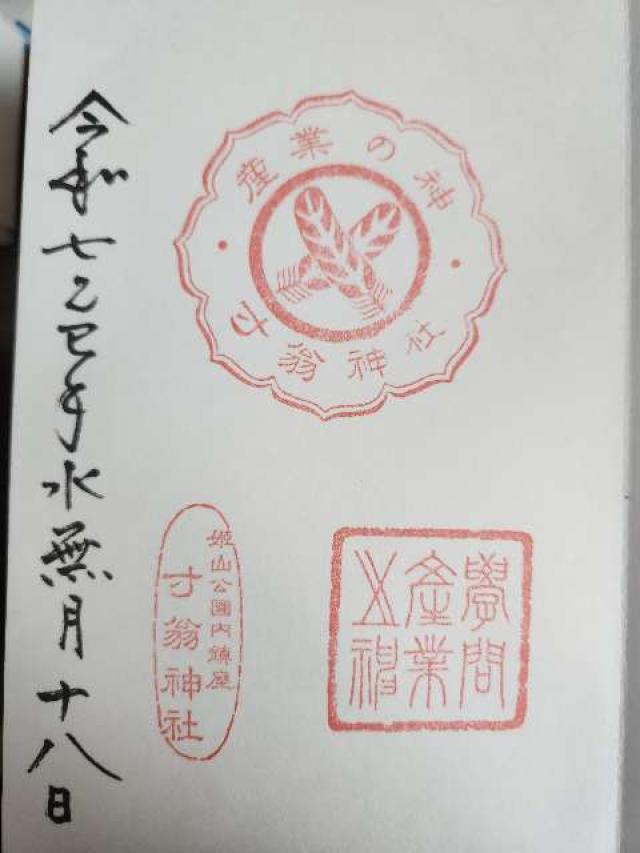 産業の神
寸翁神社
學問
産業
神
姫山公園内鎮座
寸翁神社
令和七乙巳年水無月十八日